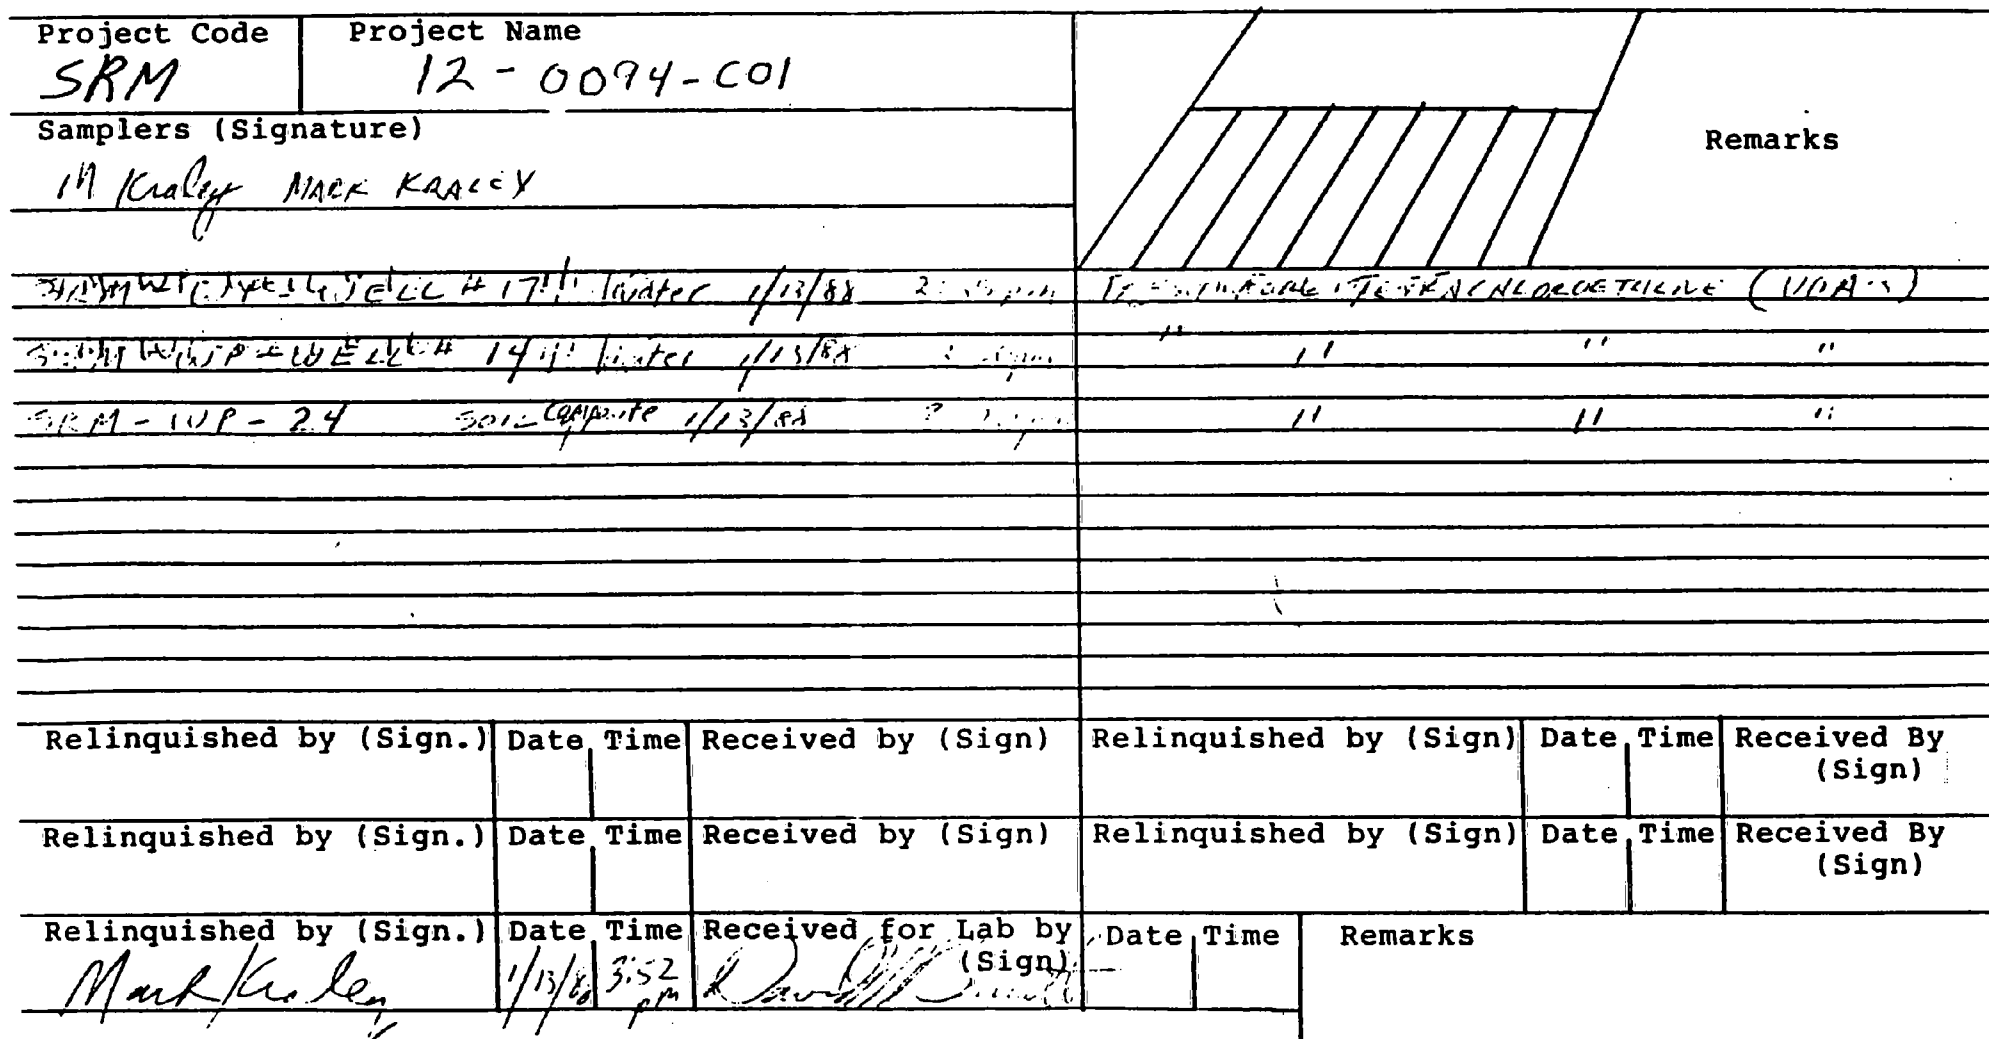 Project Code Project Name
SRM 12-0094-C01
Samplers (Signature)
M Kraley MARK KRALEY
Remarks
WELL # 17 Water 1/13/88 2 pm TETRACHLOROETHLENE (VOA's)
WELL # 14 Water 1/13/88 pm " " " "
SRM-WP-24 SOIL Composite 1/13/88 " " "
Relinquished by (Sign.) Date Time Received by (Sign) Relinquished by (Sign) Date Time Received By (Sign)
Relinquished by (Sign.) Date Time Received by (Sign) Relinquished by (Sign) Date Time Received By (Sign)
Relinquished by (Sign.) Date Time Received for Lab by (Sign) Date Time Remarks
Mark Kraley 1/13/88 3:52 pm David